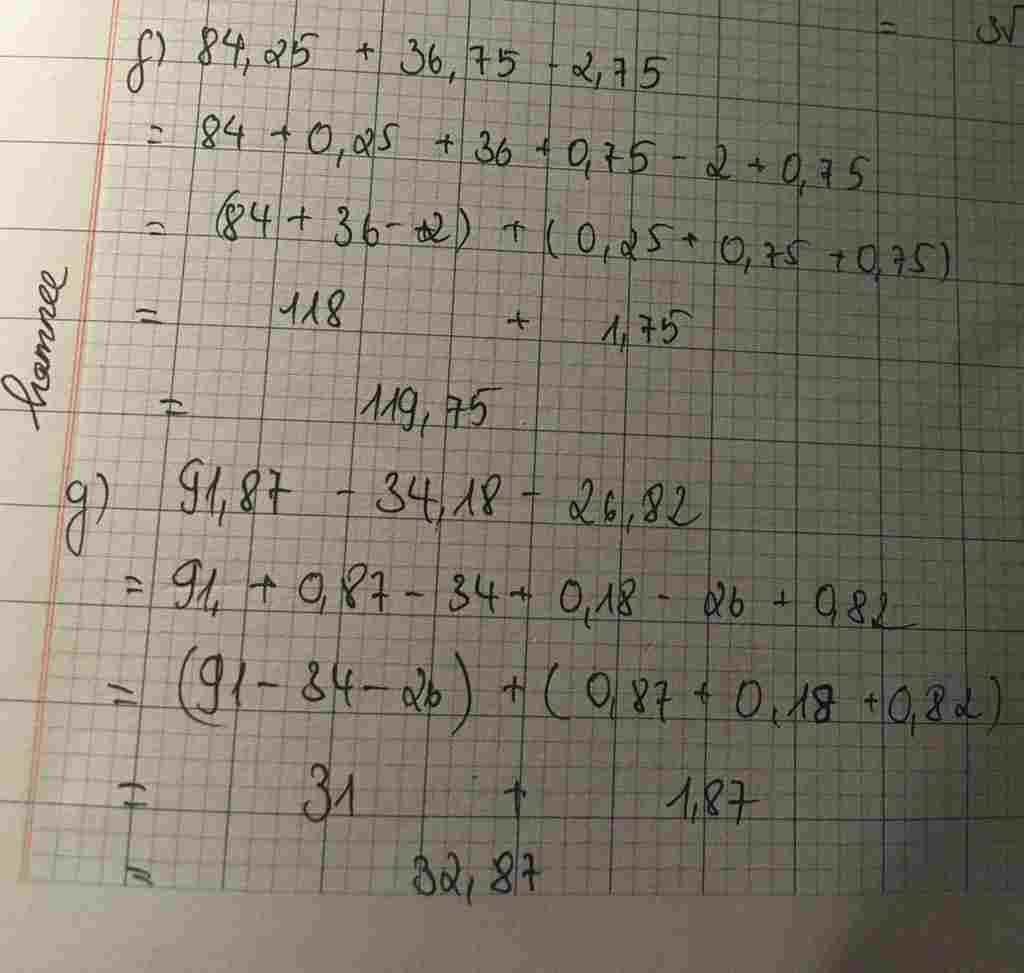 = 3
f) 84,25 + 36,75 - 2,75
= 84 + 0,25 + 36 + 0,75 - 2 + 0,75
= (84 + 36 - 2) + (0,25 + 0,75 + 0,75)
= 118 + 1,75
= 119,75
g) 91,87 - 34,18 - 26,82
= 91, + 0,87 - 34 + 0,18 - 26 + 0,82
= (91 - 34 - 26) + (0,87 + 0,18 + 0,82)
= 31 + 1,87
= 32,87